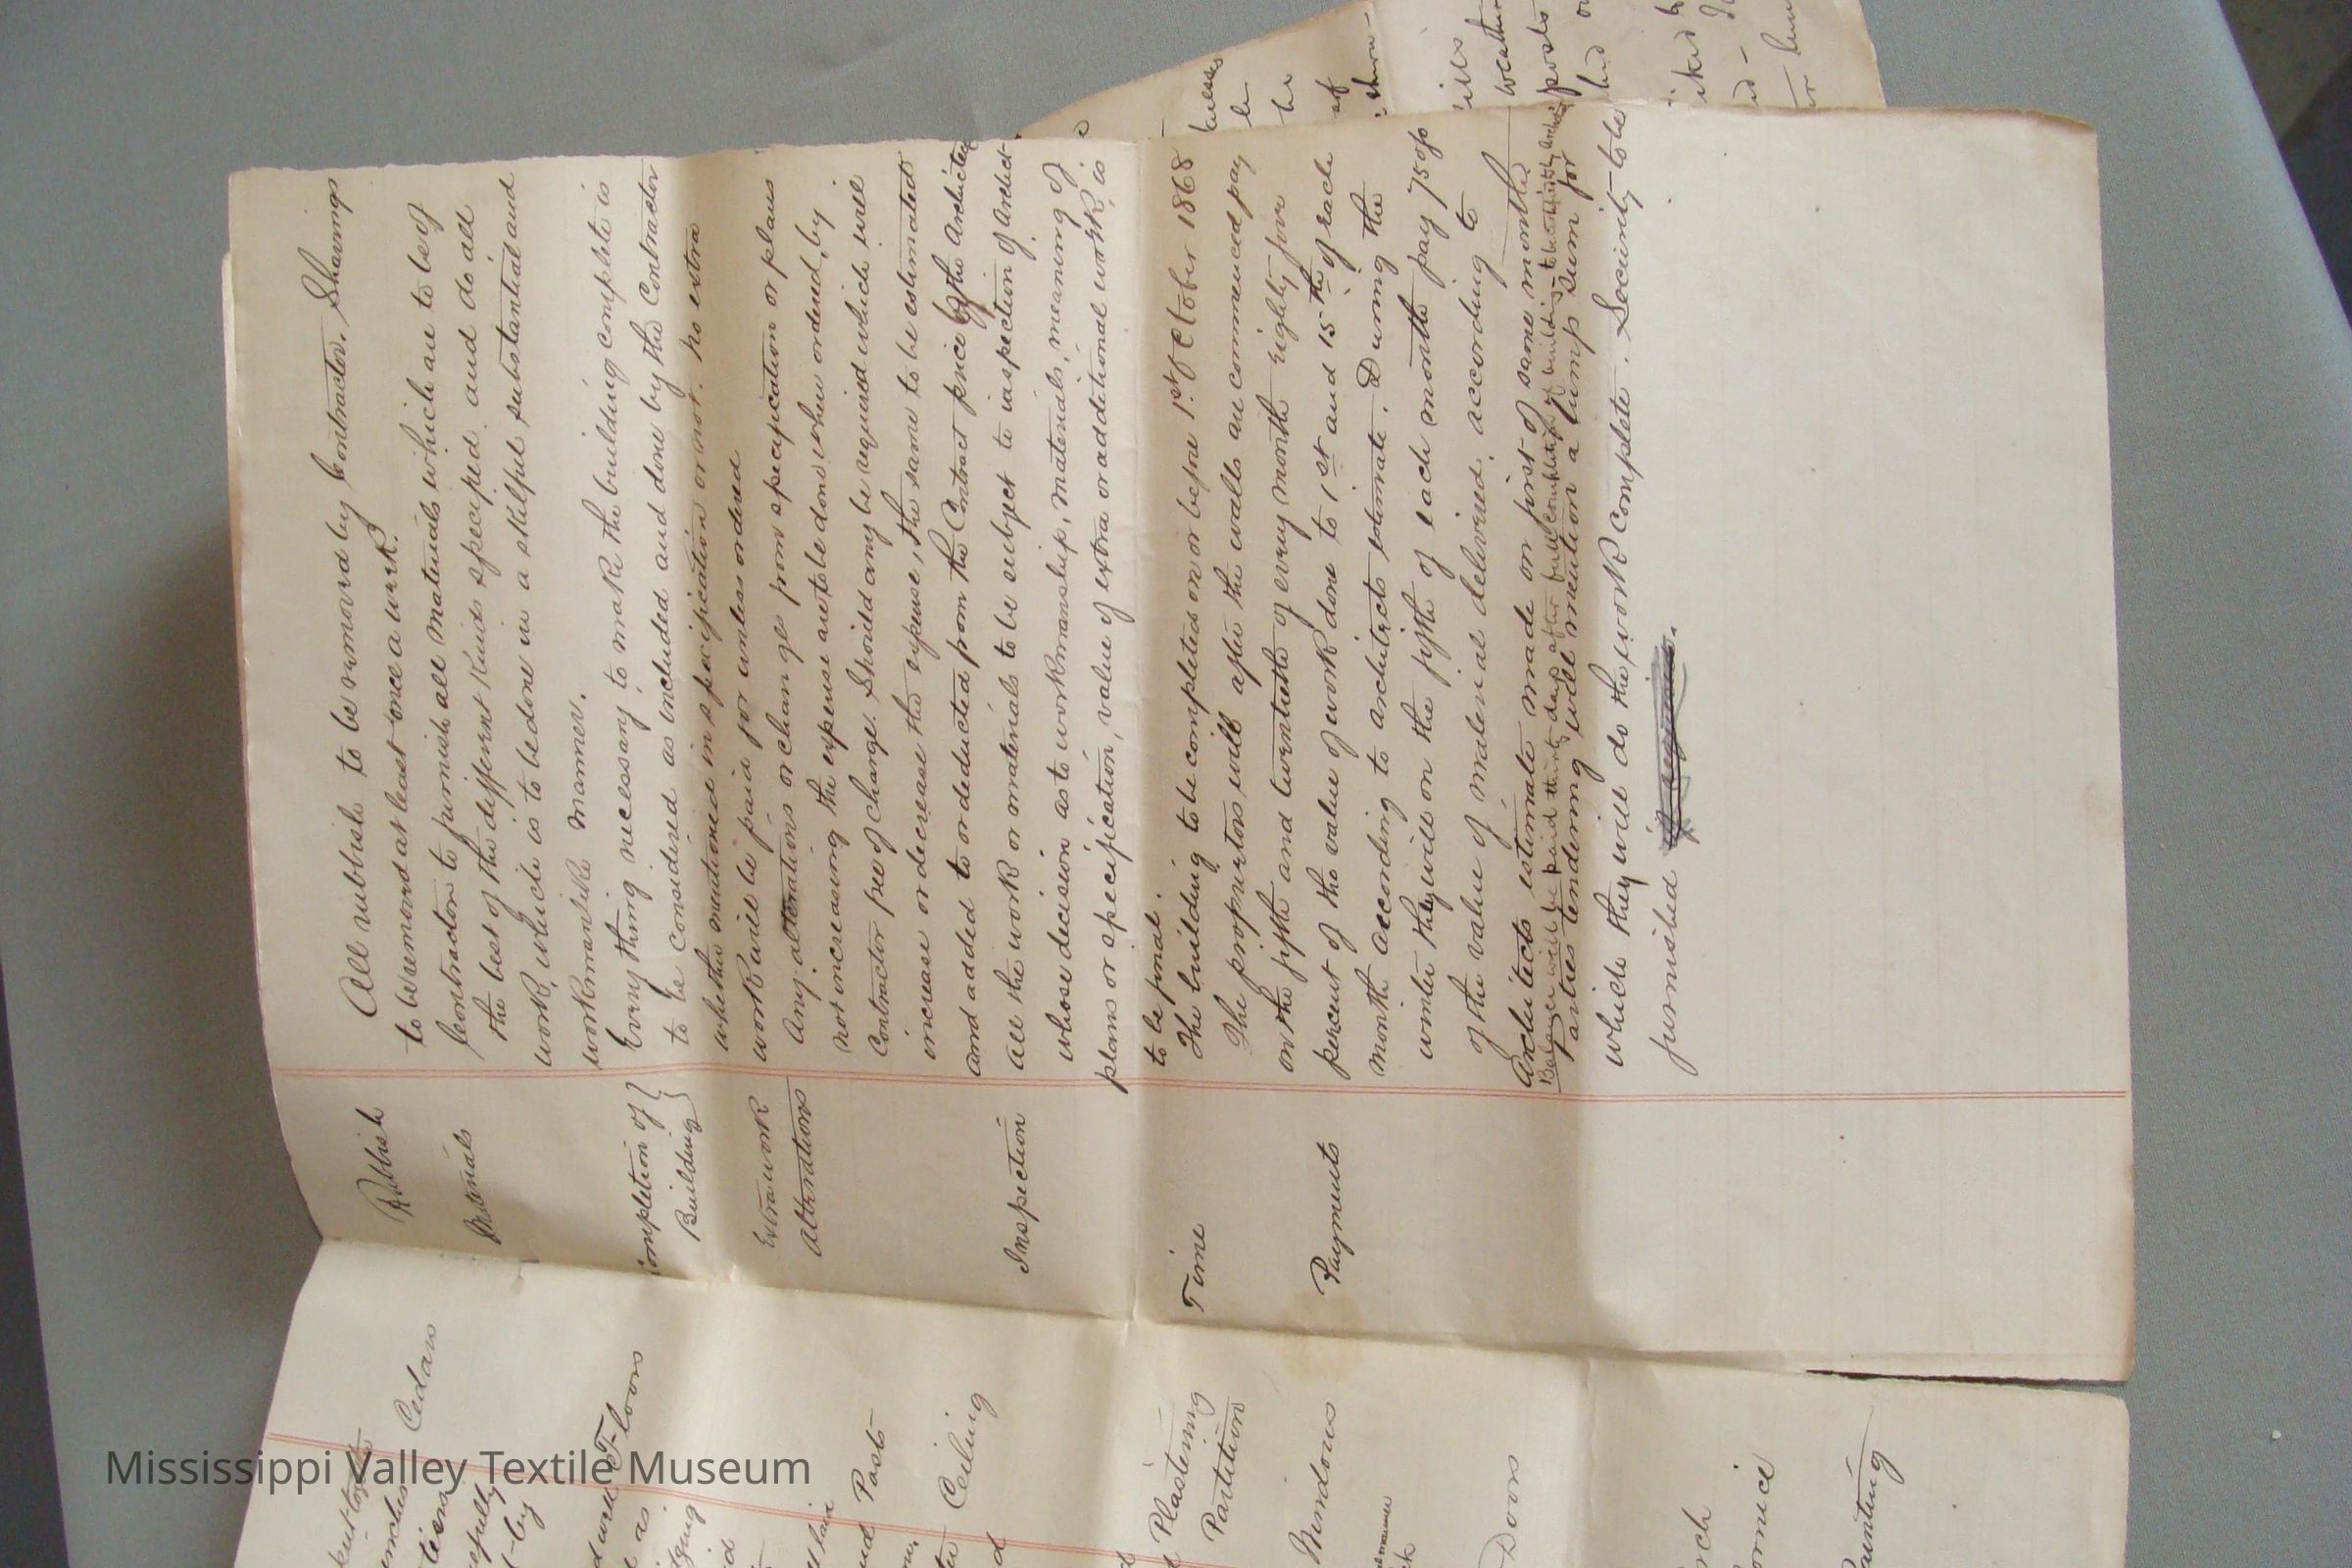 Rubbish
All rubbish to be removed by Contractor. Shavings
to be removed at least once a week.
Materials
Contractor to furnish all materials which are to be of
the best of the different kinds specified and do all
work, which is to be done in a skilful substantial and
workmanlike manner.
Completion of
Building
Everything necessary to make the building complete is
to be considered as included and done by the Contractor
whether mentioned in specification or not. No extra
Extra work
work will be paid for unless ordered
Alterations
Any alterations or changes from specification or plans
not increasing the expense are to be done when ordered, by
Contractor free of charge. Should any be required which will
increase or decrease the expense, the same to be estimated
and added to or deducted from the Contract price by the Architect
Inspection
All the work or materials to be subject to inspection of Architect
whose decision as to workmanship, materials, meaning of
plans or specification, value of extra or additional work, is
to be final.
Time
The building to be completed on or before 1st October 1868
Payments
The proprietors will after the walls are commenced pay
on the fifth and twentieth of every month Eighty five
percent of the value of work done to 1st and 15th of each
month according to architects estimate. During the
winter they will on the fifth of each month pay 75 %
of the value of material delivered, according to
Architects estimate made on first of same month
Balance will be paid thirty days after full completion of building
Parties tendering will mention a lump sum for
which they will do the work complete. Security to be
furnished
Cedars
Floors
Posts
Ceiling
Plastering
Partition
Windows
Doors
Painting
Mississippi Valley Textile Museum